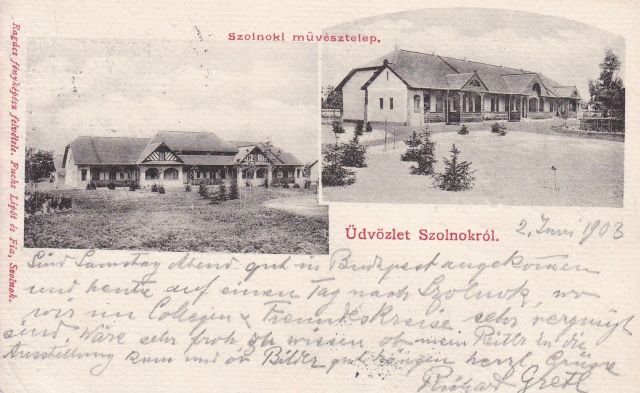 Szolnoki müvésztelep.
Ragács fényképész felvétele. Fuchs Lipót és Fia, Szolnok.
Üdvözlet Szolnokról.
2. Juni 1903
Sind Samstag Abend gut in Budapest angekommen
und heute auf einen Tag nach Szolnok, wo
wir im Collegen & Freundeskreise sehr vergnügt
sind. Wäre sehr froh zu wissen ob mein in die
Ausstellung kam und ob Bilder gut hängen herzl. Grüsse
Richard Gretl